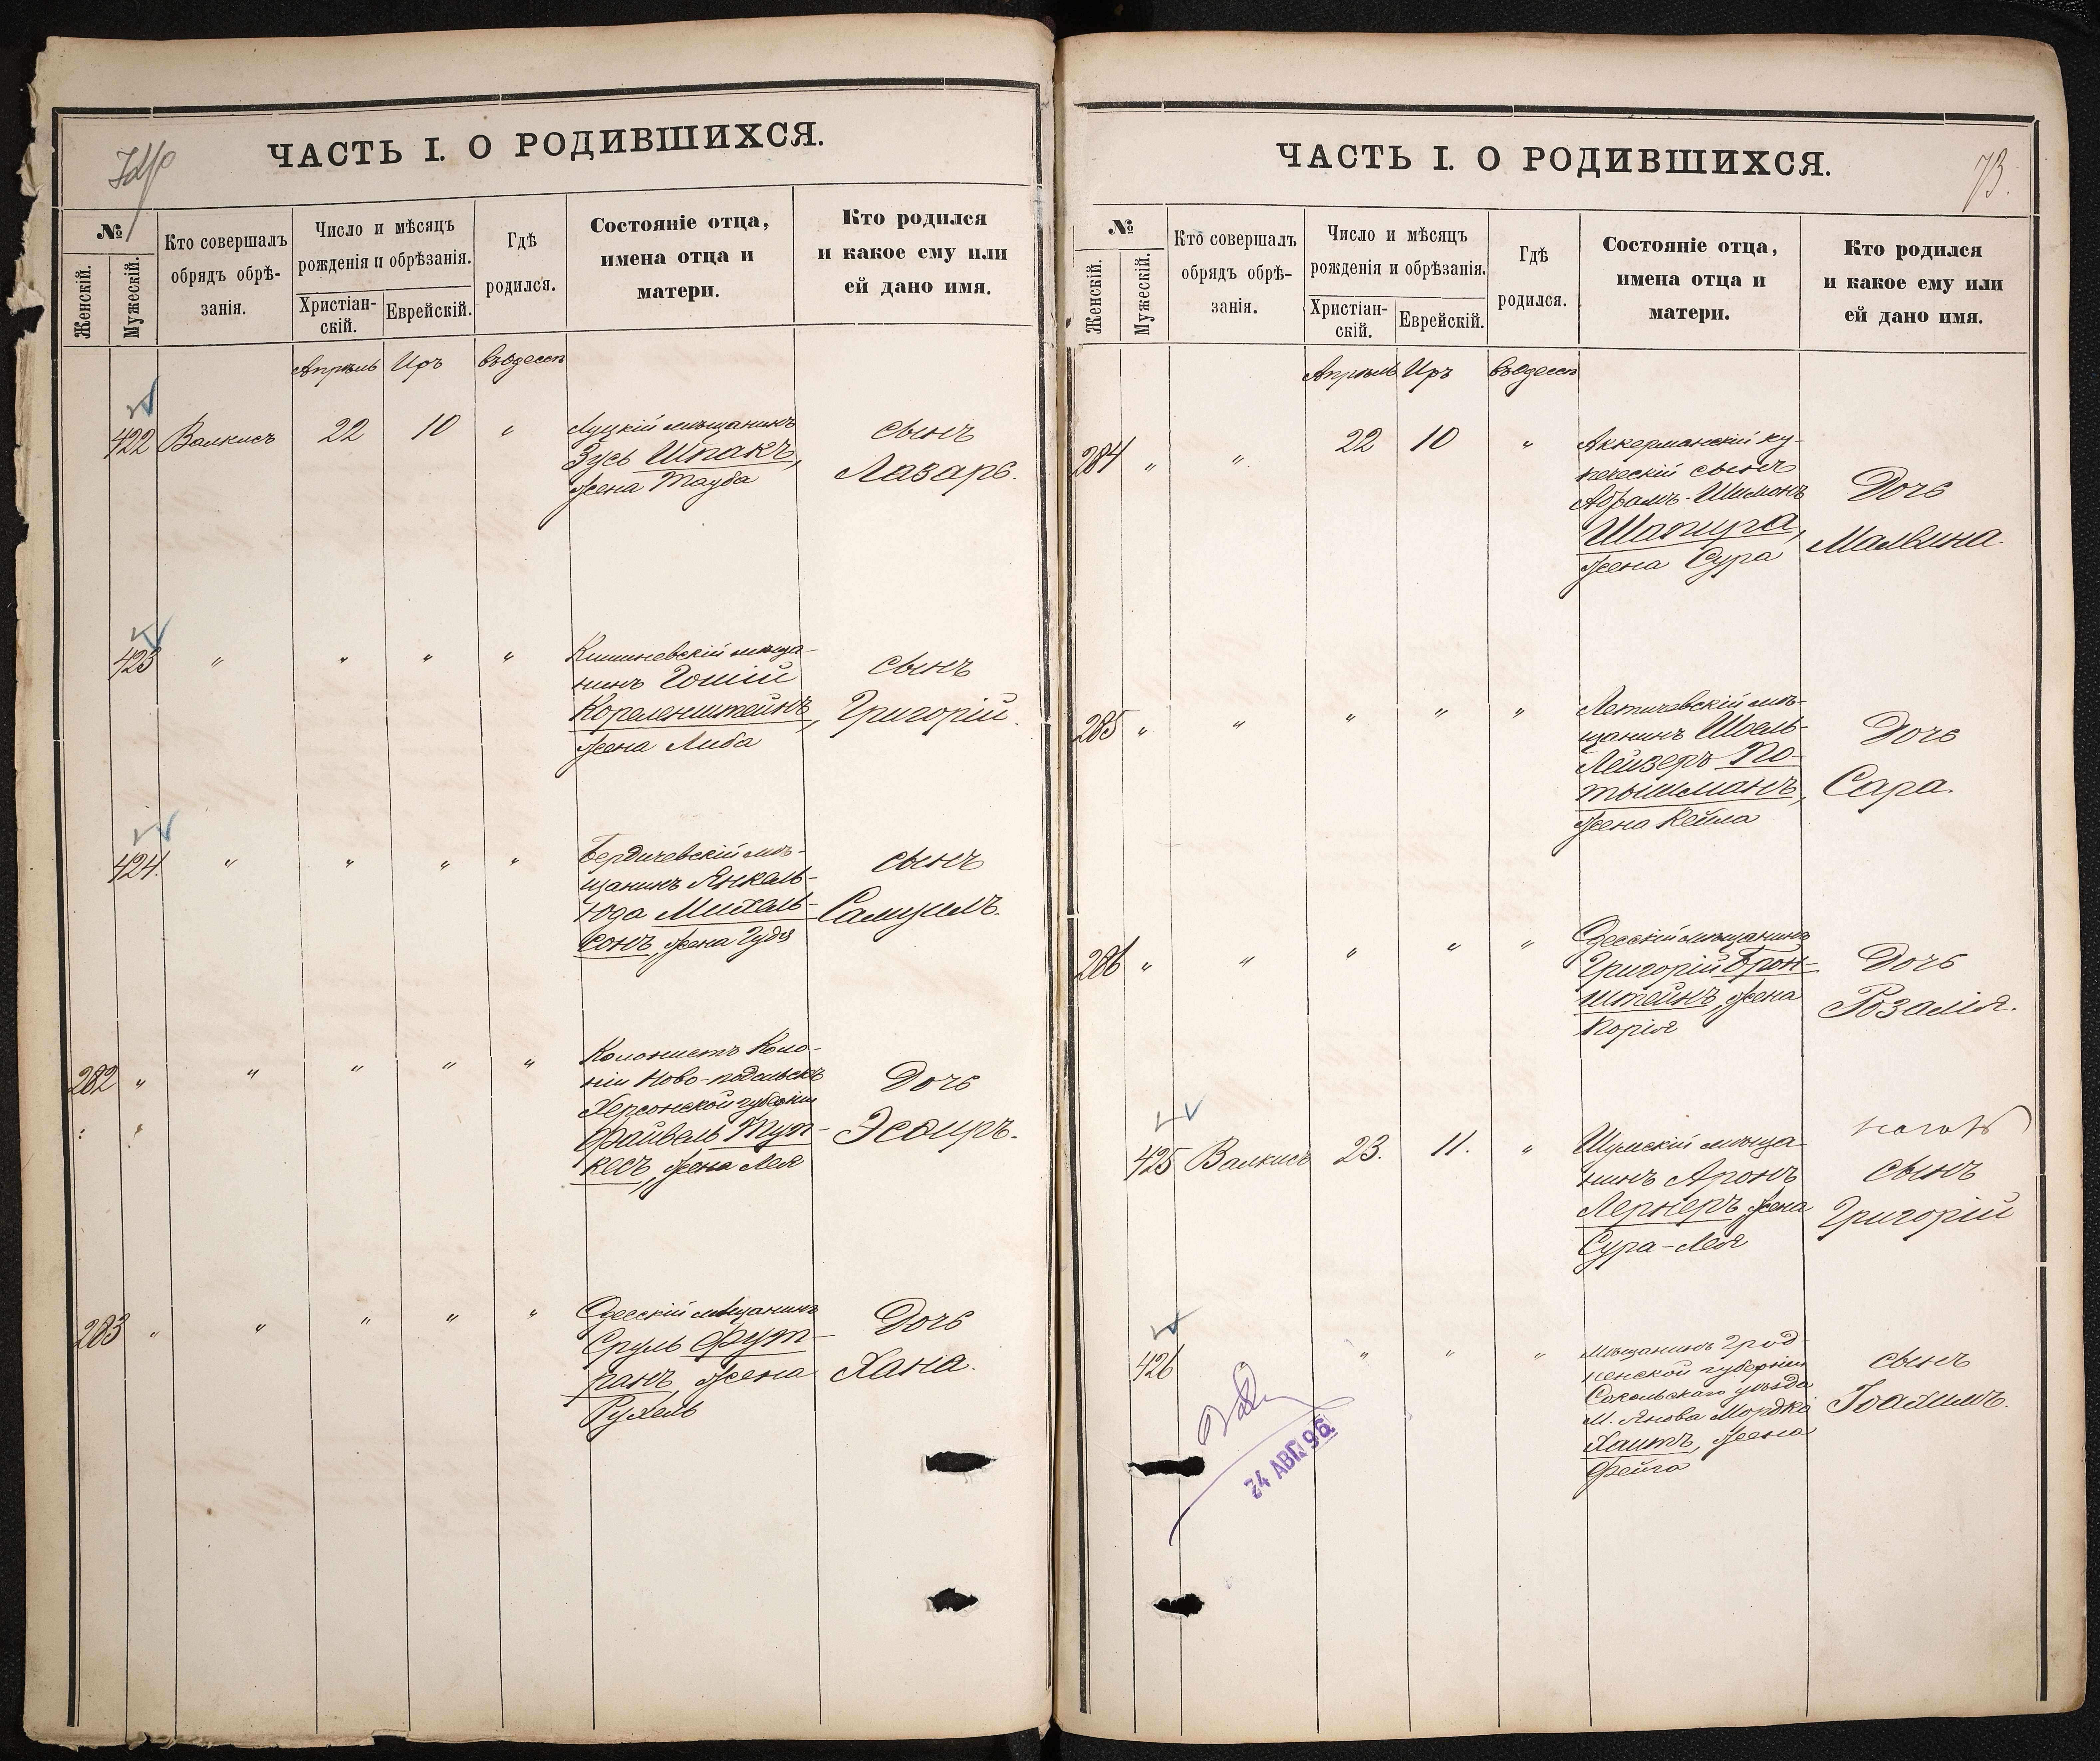 ЧАСТЬ I. О РОДИВШИХСЯ.
№
Женскій.
Мужескій.
Кто совершалъ
обрядъ обрѣ-
занія.
Число и мѣсяцъ
рожденія и обрѣзанія.
Христіан-
скій.
Еврейскій.
Гдѣ
родился.
Состояніе отца,
имена отца и
матери.
Кто родился
и какое ему или
ей дано имя.
Апрѣль Иръ въ Одессѣ
422 Валкисъ 22 10 "
Луцкій мѣщанинъ
Зусь Шпакъ,
жена Тауба
сынъ
Лазарь.
423 " " " "
Кишиневскій мѣща-
нинъ Гошій
Корленштейнъ,
жена Либа
сынъ
Григорій.
424. " " " "
Бердичевскій мѣ-
щанинъ Янкель-
Юда Михель-
сонъ, жена Гудя
сынъ
Самуилъ.
282 " " " " "
Колонистъ Коло-
ніи Ново-подольскъ
Херсонской губерніи
Файвель Тут-
кесъ, жена Лея
Дочь
Эсѳиръ.
283 " " " " "
Одесскій мѣщанинъ
Сруль Фут-
ранъ, жена
Рухель
Дочь
Хана.
ЧАСТЬ I. О РОДИВШИХСЯ.
73.
№
Женскій.
Мужескій.
Кто совершалъ
обрядъ обрѣ-
занія.
Число и мѣсяцъ
рожденія и обрѣзанія.
Христіан-
скій.
Еврейскій.
Гдѣ
родился.
Состояніе отца,
имена отца и
матери.
Кто родился
и какое ему или
ей дано имя.
Апрѣль Иръ въ Одессѣ
284 " " 22 10 "
Аккерманскій ку-
печескій сынъ
Абрамъ-Шимонъ
Шапира,
жена Сура
Дочь
Малвина.
285 " " " " "
Летичевскій мѣ-
щанинъ Шоель-
Лейзеръ По-
тышманъ,
жена Кейла
Дочь
Сара.
286 " " " " "
Одесскій мѣщанинъ
Григорій Брон-
штейнъ, жена
Корія
Дочь
Розалія.
425 Валкисъ 23. 11. "
Шумскій мѣща-
нинъ Аронъ
Лернеръ, жена
Сура-Лея
сынъ
Григорій
426 " " "
Мѣщанинъ Грод-
ненской губерніи
Сокольскаго уѣзда
М. Янова Мордко
Хаитъ, жена
Фейга
сынъ
Іоахимъ.
24 АВГ. 96